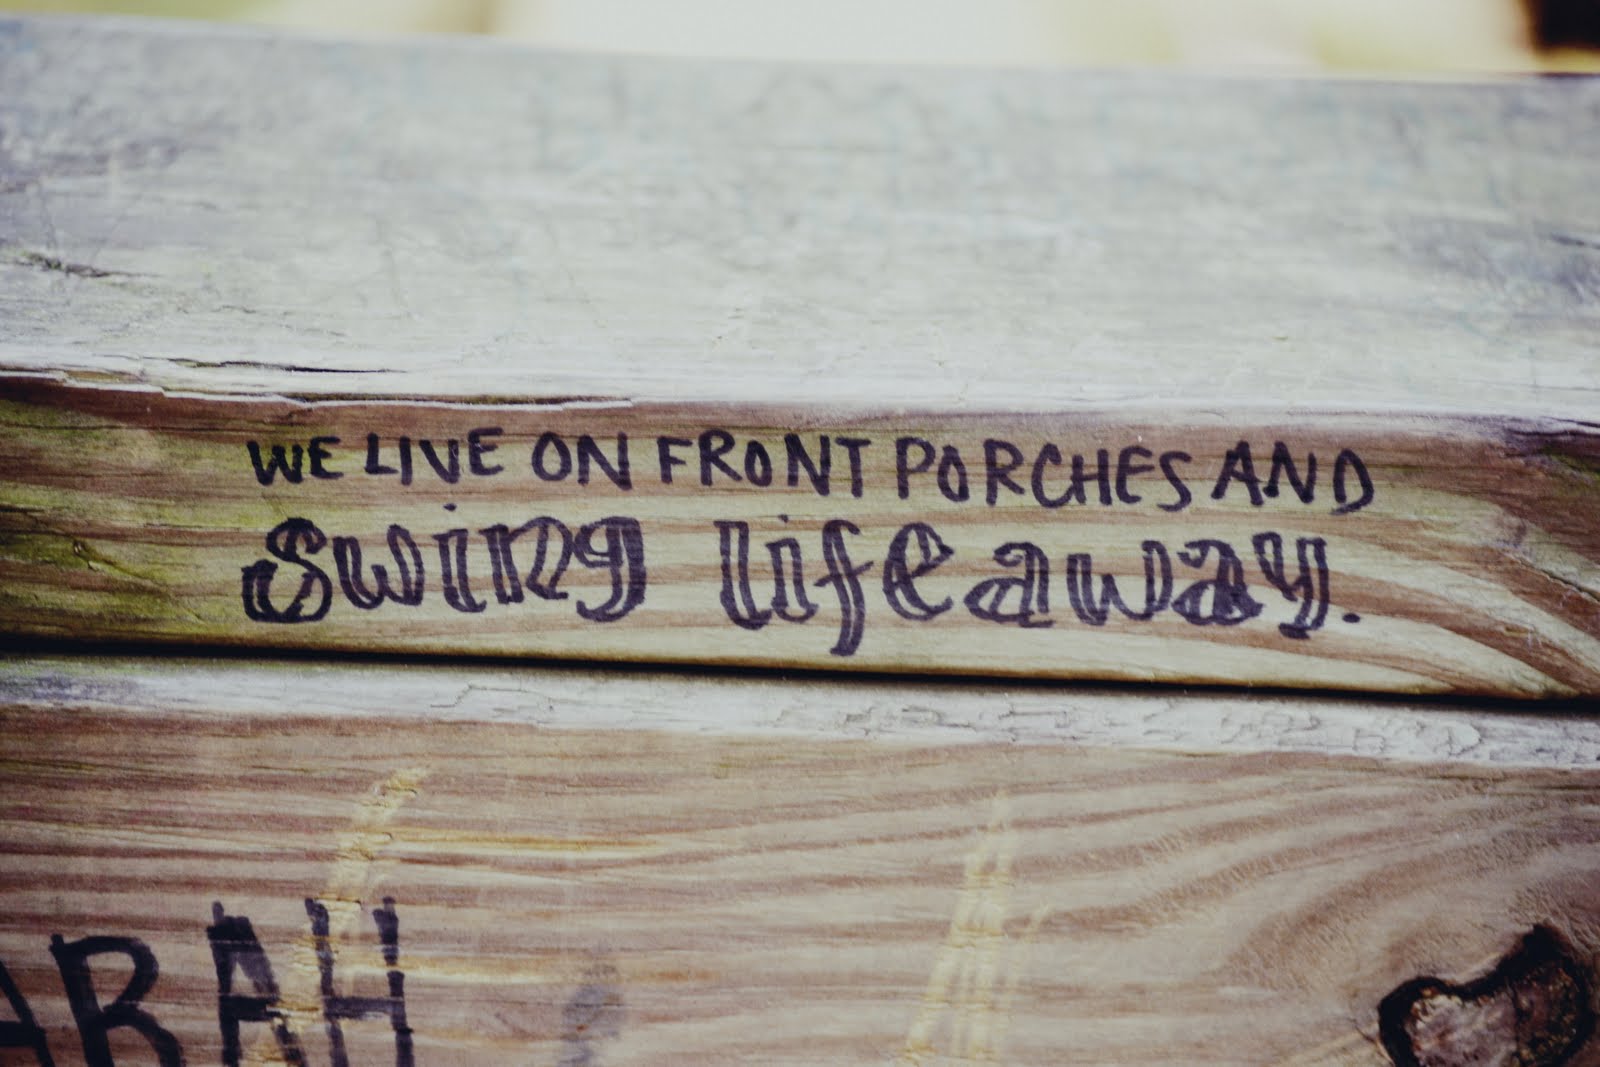 WE LIVE ON FRONT PORCHES AND
swing life away.
ARAH